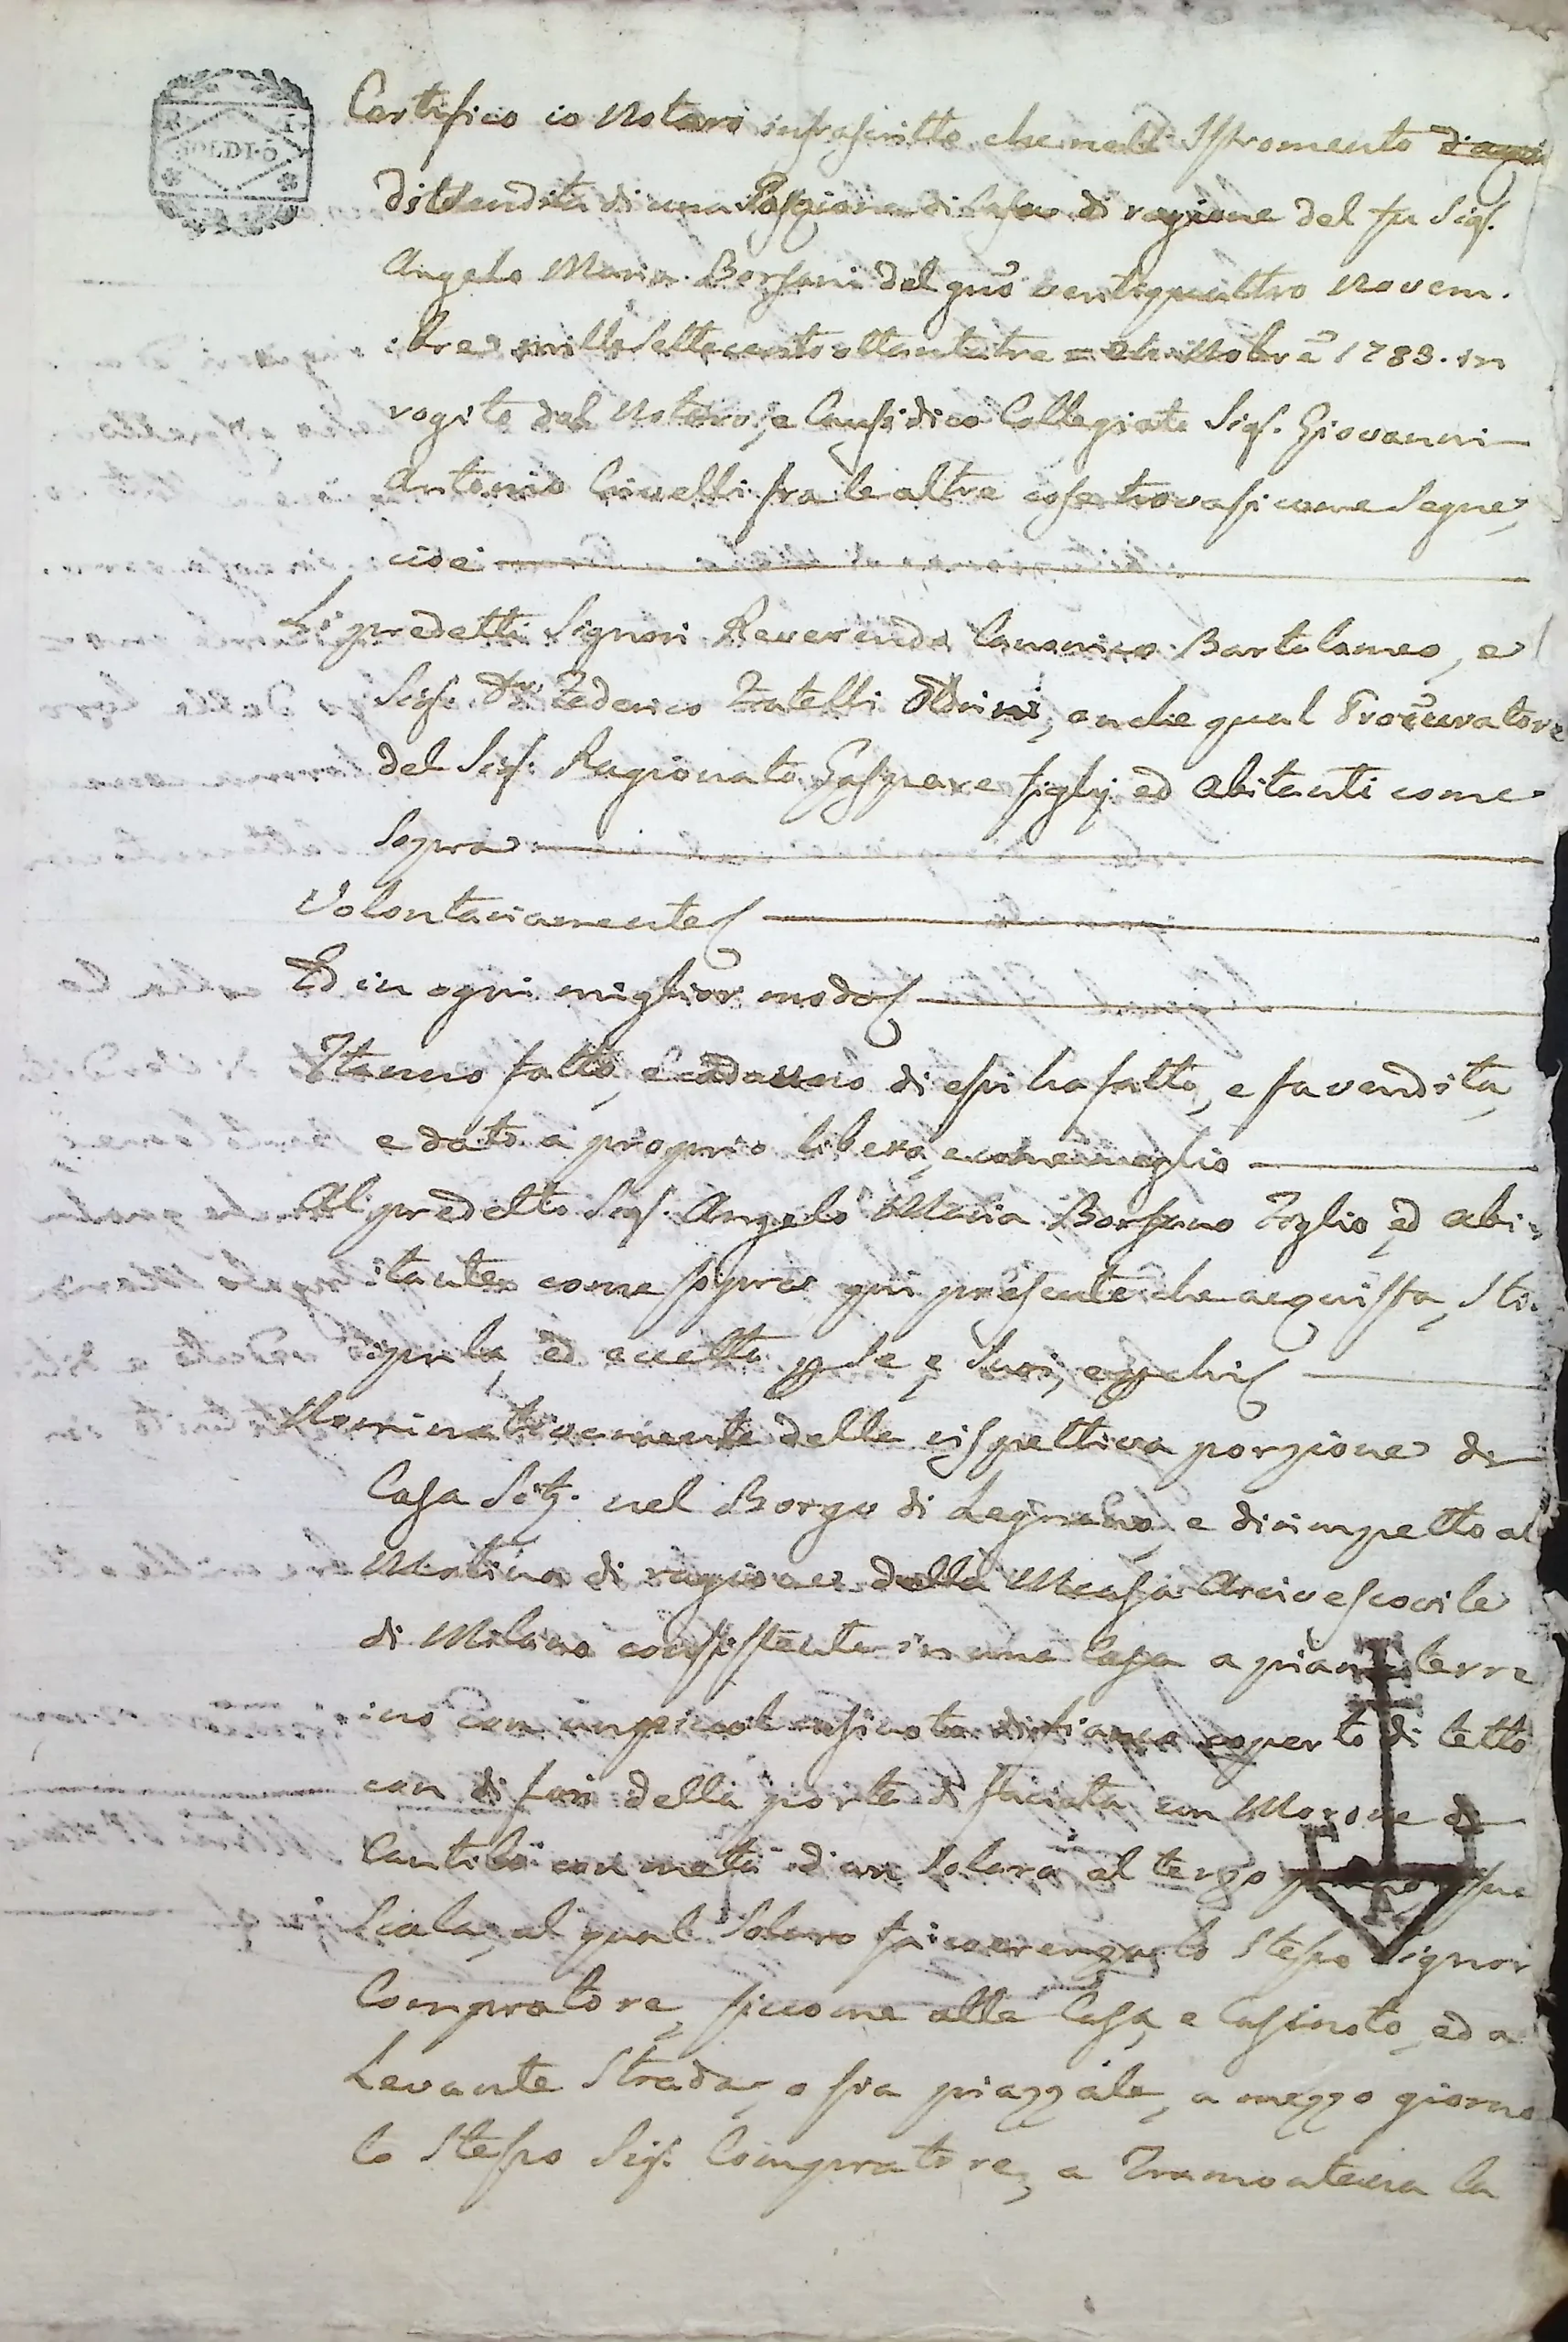 SOLDI 6
Certifico io Notaro infrascritto che nell' Istromento
di Vendita di una Porzione di Casa di ragione del fu Sigr.
Angelo Maria Borsani del giorno ventiquattro Novem.
bre mille settecento ottantatre = 24 Nobre 1783. in
rogito dal Notaro, e Causidico Collegiato Sigr. Giovanni
Antonio Crivelli fra le altre cose trovasi come segue,
cioè
Li predetti Signori Reverendo Canonico Bartolomeo, e
Sigr. Dr. Federico Fratelli Oldrini, anche qual Procuratore
del Sigr. Ragionato Gaspare figlj ed abitanti come
sopra
Volontariamente
Ed in ogni miglior modo
Hanno fatto, e cadauno di essi ha fatto, e fa vendita,
e dato a proprio libero, e come meglio
Al predetto Sigr. Angelo Maria Borsano Figlio, ed abi:
:tante come sopra qui presente che acquista, sti:
:pula, ed accetta per se, e suoi, e per chi
Nominativamente della rispettiva porzione di
Casa Sitz. nel Borgo di Legnano, e dirimpetto al
Mulino di ragione della Mensa Arcivescovile
di Milano consistente in una Casa a pian terre
ino con un piccol casinoto di fianco coperto di tetto
con di fuori della porta di facciata un Morone
con metà d'un Solaro al tergo
Scala, al qual Solaro fa coerenza lo stesso Signor
Compratore, siccome alla Casa, e Casinoto, ed a
Levante Strada, o sia piazzale, a mezzo giorno
lo Stesso Sigr. Compratore, a Tramontana la